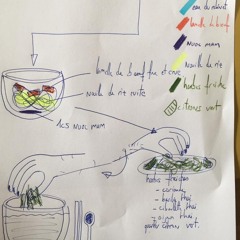 eau du robinet
lamelle de boeuf
NUOC MAM
Nouille de riz
herbes fraîches
citrons vert.
lamelle de boeuf fine et crue
Nouille de riz cuite
1cs Nuoc mam
herbes fraîches
- coriandre
- basilic thaï
- ciboulette thaï
- oignon thaï
quartier citrons vert.